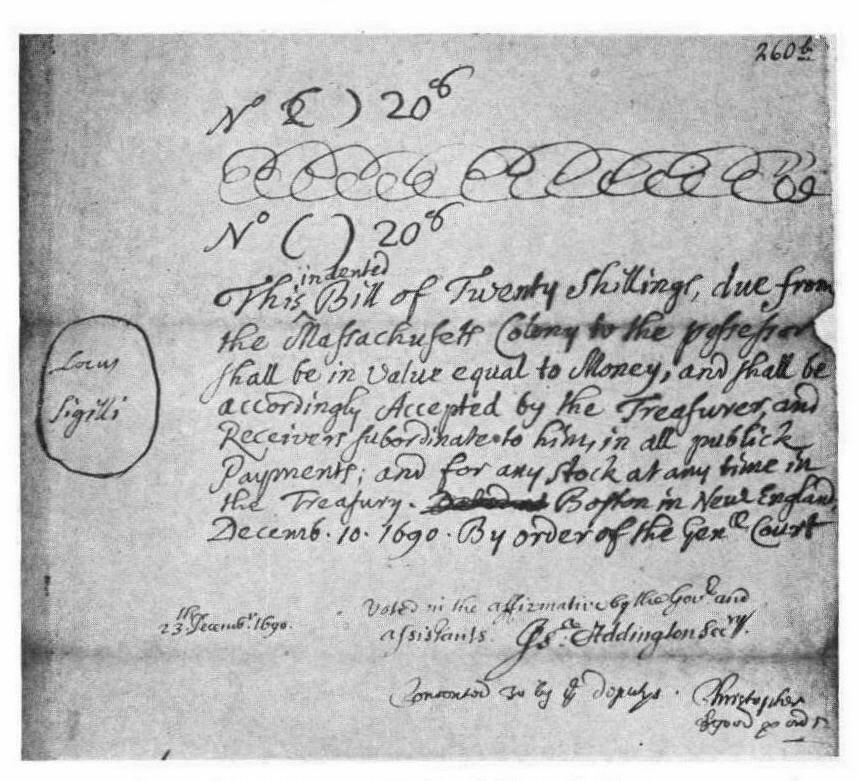 260b
No ( ) 20s
No ( ) 20s
indented
This Bill of Twenty Shillings, due from
the Massachusetts Colony to the possessor
shall be in value equal to Money, and shall be
accordingly Accepted by the Treasurer, and
Receivers subordinate to him, in all publick
Payments; and for any Stock at any time in
the Treasury. Boston in New England,
Decemb. 10. 1690. By order of the Genll Court
Locus
Sigilli
23 Decembr. 1690.
Voted in the affirmative by the Govr and
assistants. Isa Addington Secry.
Consented to by ye deputys. Christopher